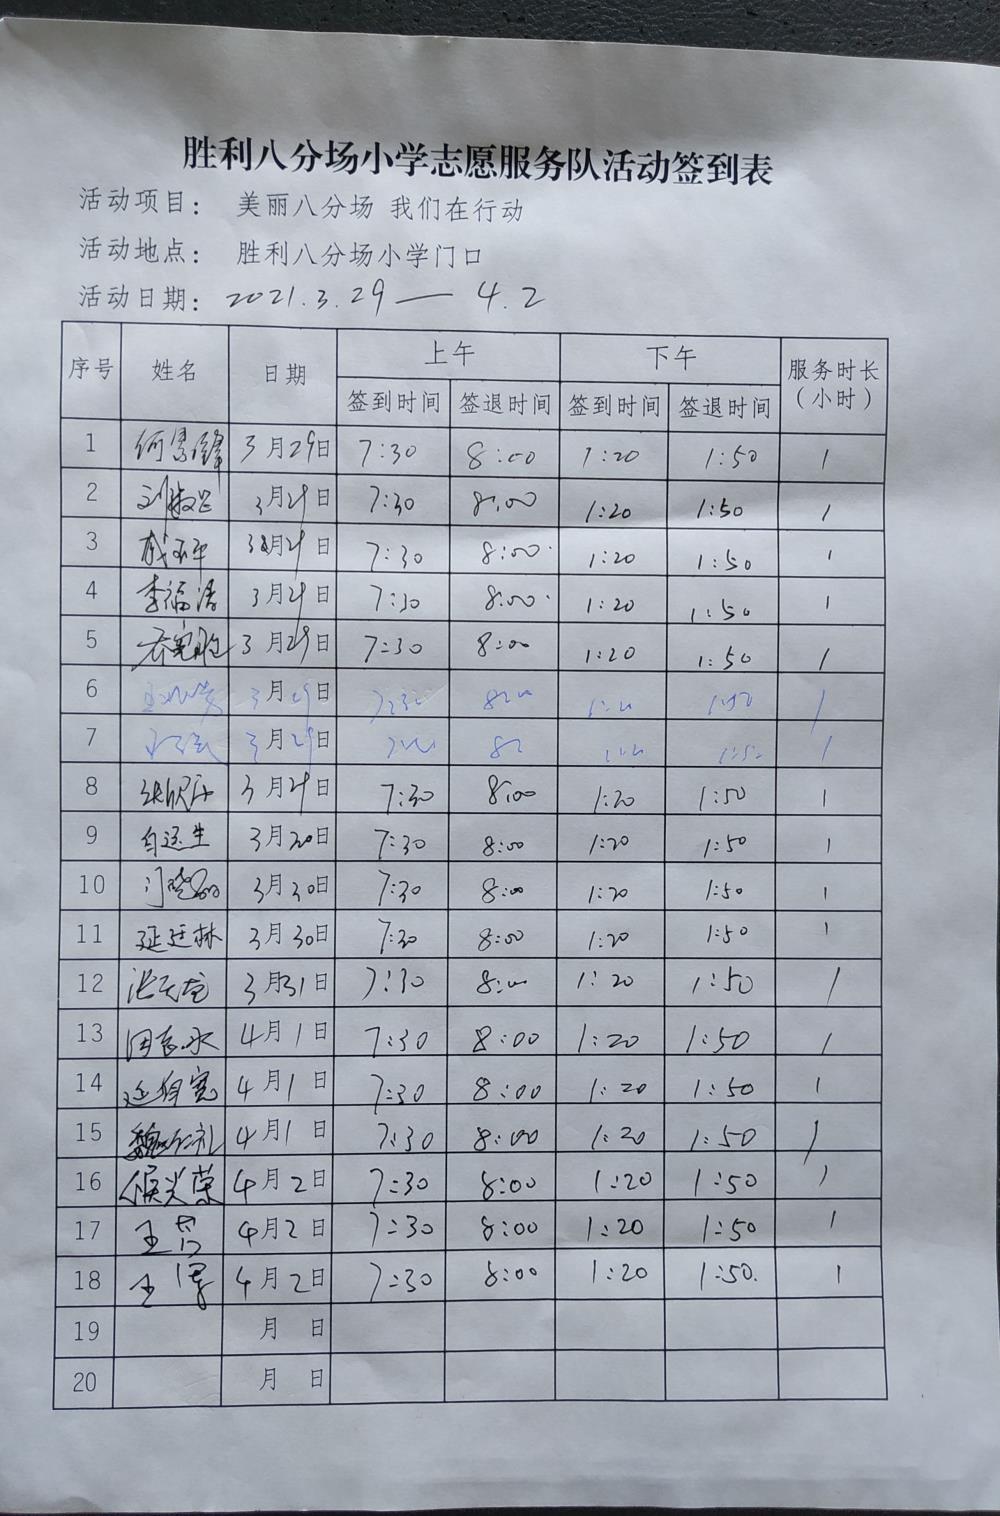 胜利八分场小学志愿服务队活动签到表
活动项目: 美丽八分场 我们在行动
活动地点: 胜利八分场小学门口
活动日期: 2021.3.29—4.2
序号 姓名 日期 上午 下午 服务时长(小时)
签到时间 签退时间 签到时间 签退时间
1 3月29日 7:30 8:00 1:20 1:50 1
2 3月29日 7:30 8:00 1:20 1:50 1
3 3月29日 7:30 8:00 1:20 1:50 1
4 李福清 3月29日 7:30 8:00 1:20 1:50 1
5 3月29日 7:30 8:00 1:20 1:50 1
6 3月29日 7:30 1:50 1
7 3月29日 1:50 1
8 3月29日 7:30 8:00 1:20 1:50 1
9 3月30日 7:30 8:00 1:20 1:50 1
10 3月30日 7:30 8:00 1:20 1:50 1
11 延廷林 3月30日 7:30 8:00 1:20 1:50 1
12 3月31日 7:30 8:00 1:20 1:50 1
13 4月1日 7:30 8:00 1:20 1:50 1
14 4月1日 7:30 8:00 1:20 1:50 1
15 4月1日 7:30 8:00 1:20 1:50 1
16 侯兴荣 4月2日 7:30 8:00 1:20 1:50 1
17 王 4月2日 7:30 8:00 1:20 1:50 1
18 王 4月2日 7:30 8:00 1:20 1:50. 1
19 月 日
20 月 日